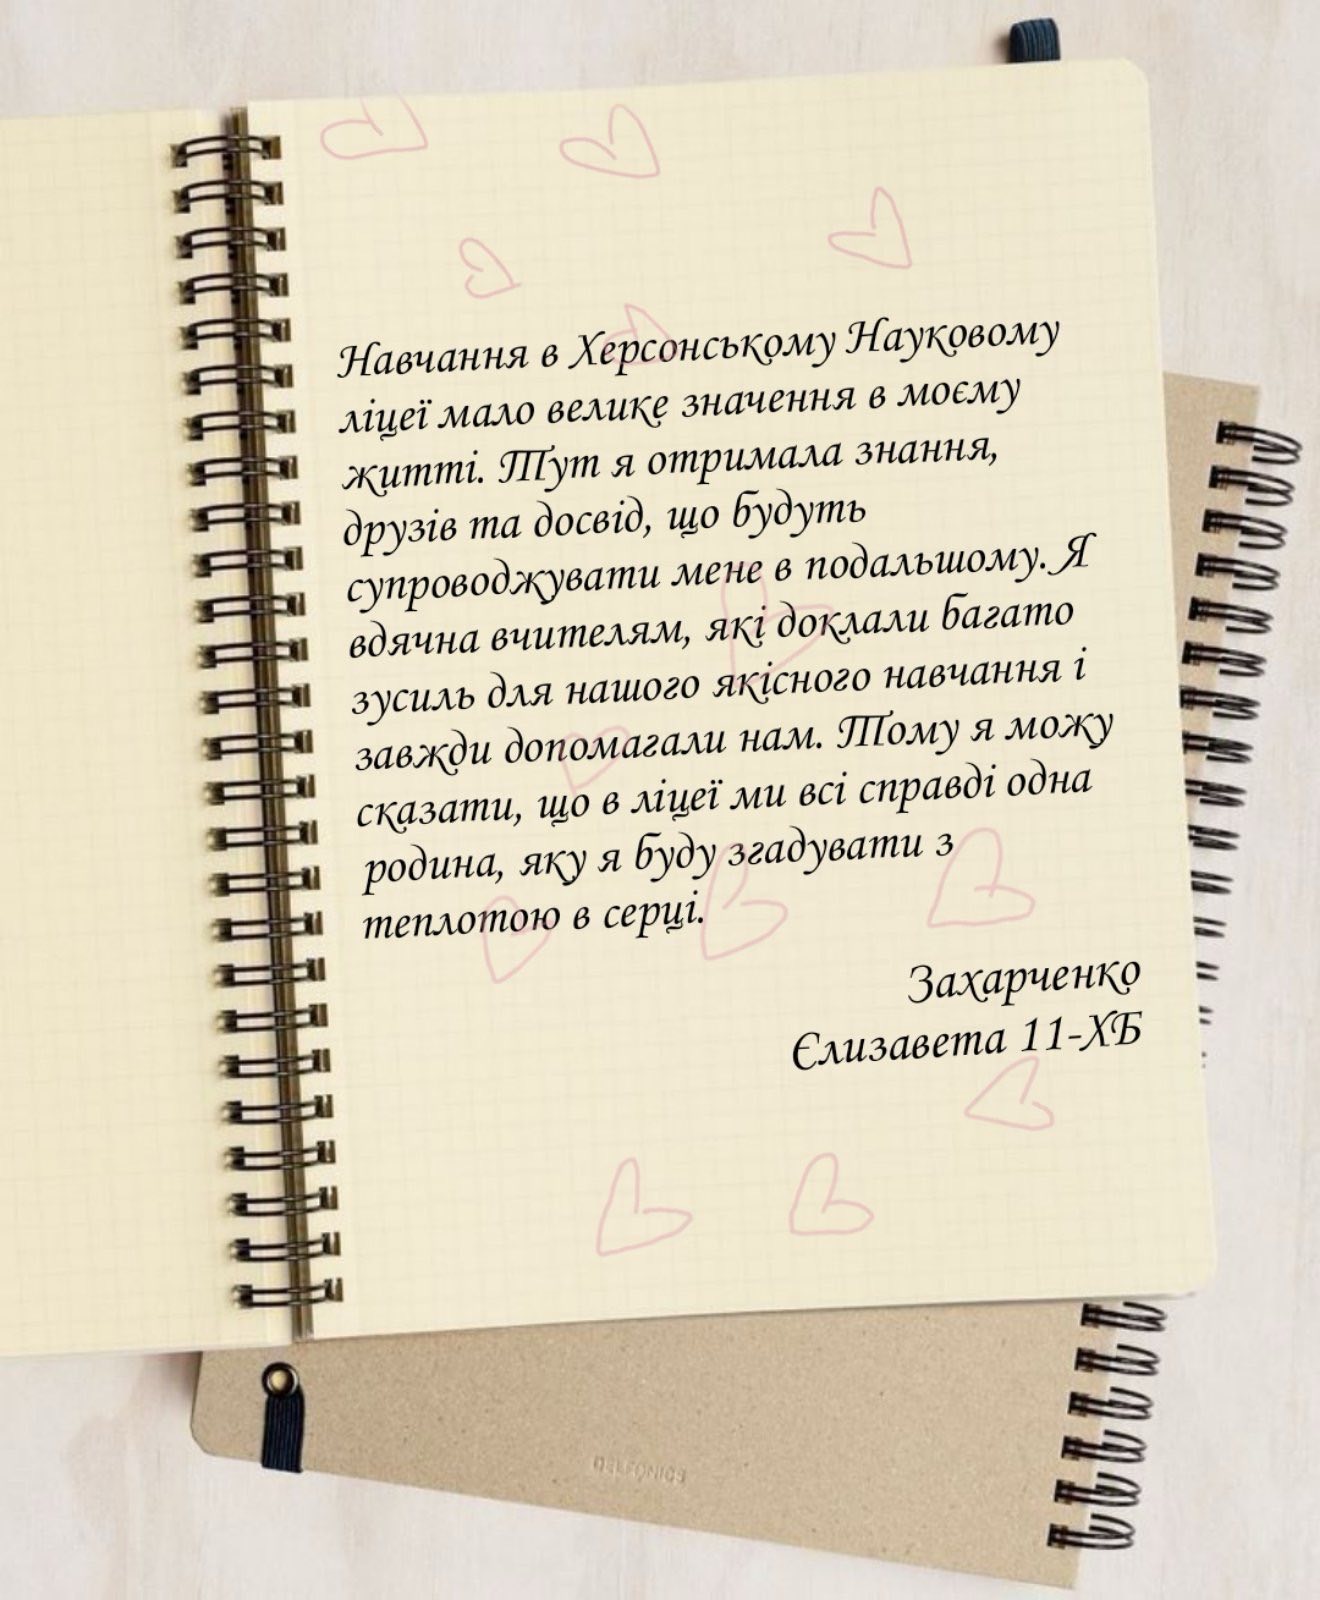 Навчання в Херсонському Науковому
ліцеї мало велике значення в моєму
житті. Тут я отримала знання,
друзів та досвід, що будуть
супроводжувати мене в подальшому. Я
вдячна вчителям, які доклали багато
зусиль для нашого якісного навчання і
завжди допомагали нам. Тому я можу
сказати, що в ліцеї ми всі справді одна
родина, яку я буду згадувати з
теплотою в серці.
Захарченко
Єлизавета 11-ХБ
DELFONICS